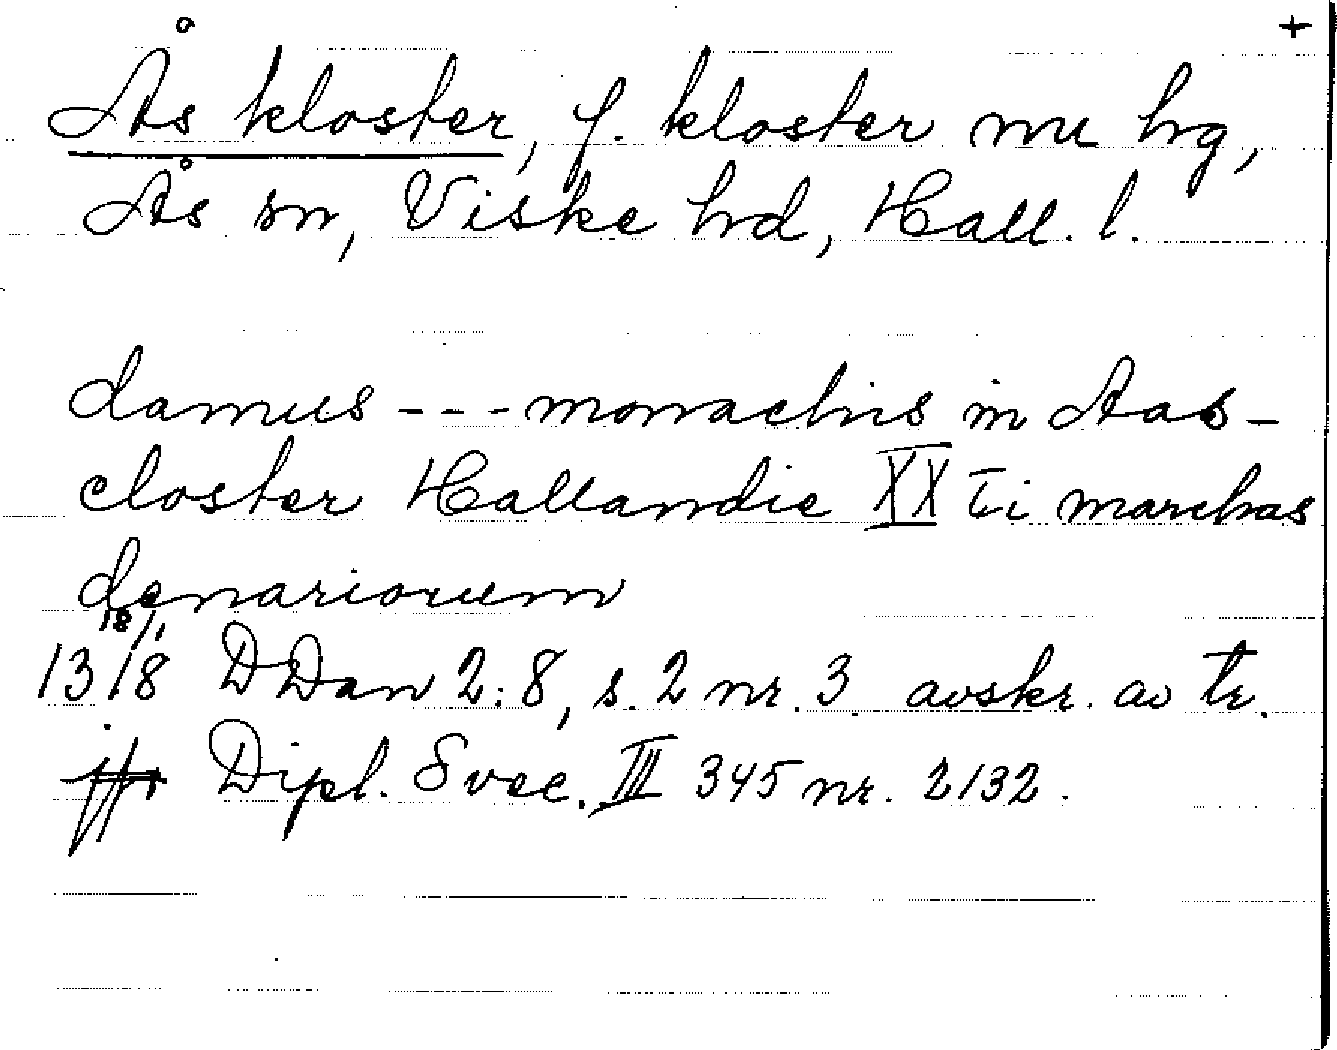 +
Ås kloster, f. kloster nu hg,
Ås sn, Viske hd, Hall. l.
damus --- monachis in Aas-
closter Hallandie XX ti marchas
denariorum
18/1
1318 DDan 2:8, s. 2 nr. 3 avskr. av tr.
Dipl. Svec. III 345 nr. 2132.